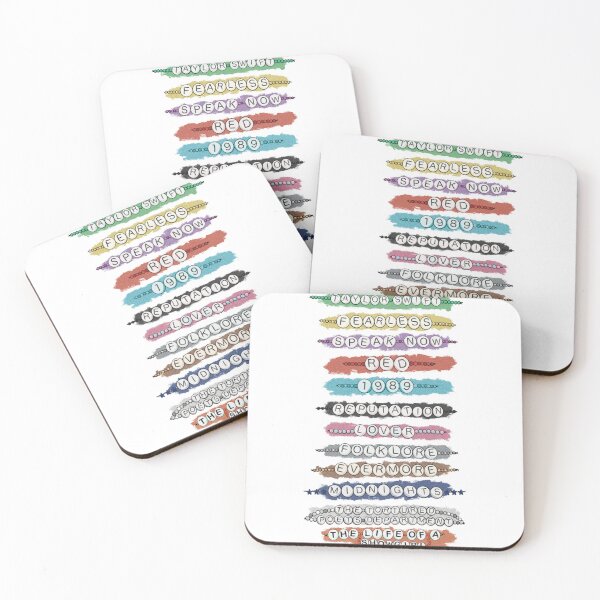 TAYLOR SWIFT
FEARLESS
SPEAK NOW
RED
1989
REPUTATION
TAYLOR SWIFT
FEARLESS
SPEAK NOW
RED
1989
REPUTATION
LOVER
FOLKLORE
EVERMORE
TAYLOR SWIFT
FEARLESS
SPEAK NOW
RED
1989
REPUTATION
LOVER
FOLKLORE
EVERMORE
MIDNIGHTS
THE LIFE
TAYLOR SWIFT
FEARLESS
SPEAK NOW
RED
1989
REPUTATION
LOVER
FOLKLORE
EVERMORE
MIDNIGHTS
THE TORTURED
POETS DEPARTMENT
THE LIFE OF A